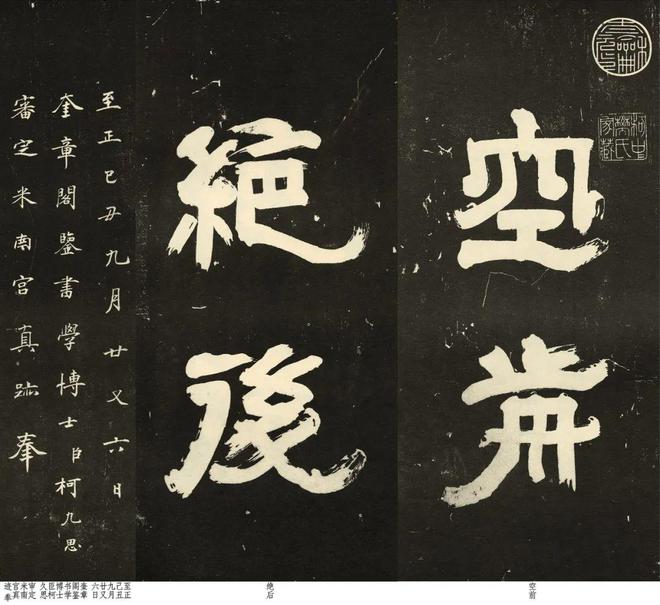 空前
絶後
至正己丑九月廿又六日
奎章閣鑒書學博士臣柯九思
審定米南宫真跡奉
空前
绝后
至正
己丑
九月
廿又
六日
奎章
阁鉴
书学
博士
臣柯
久思
审定
米南
宫真
迹奉